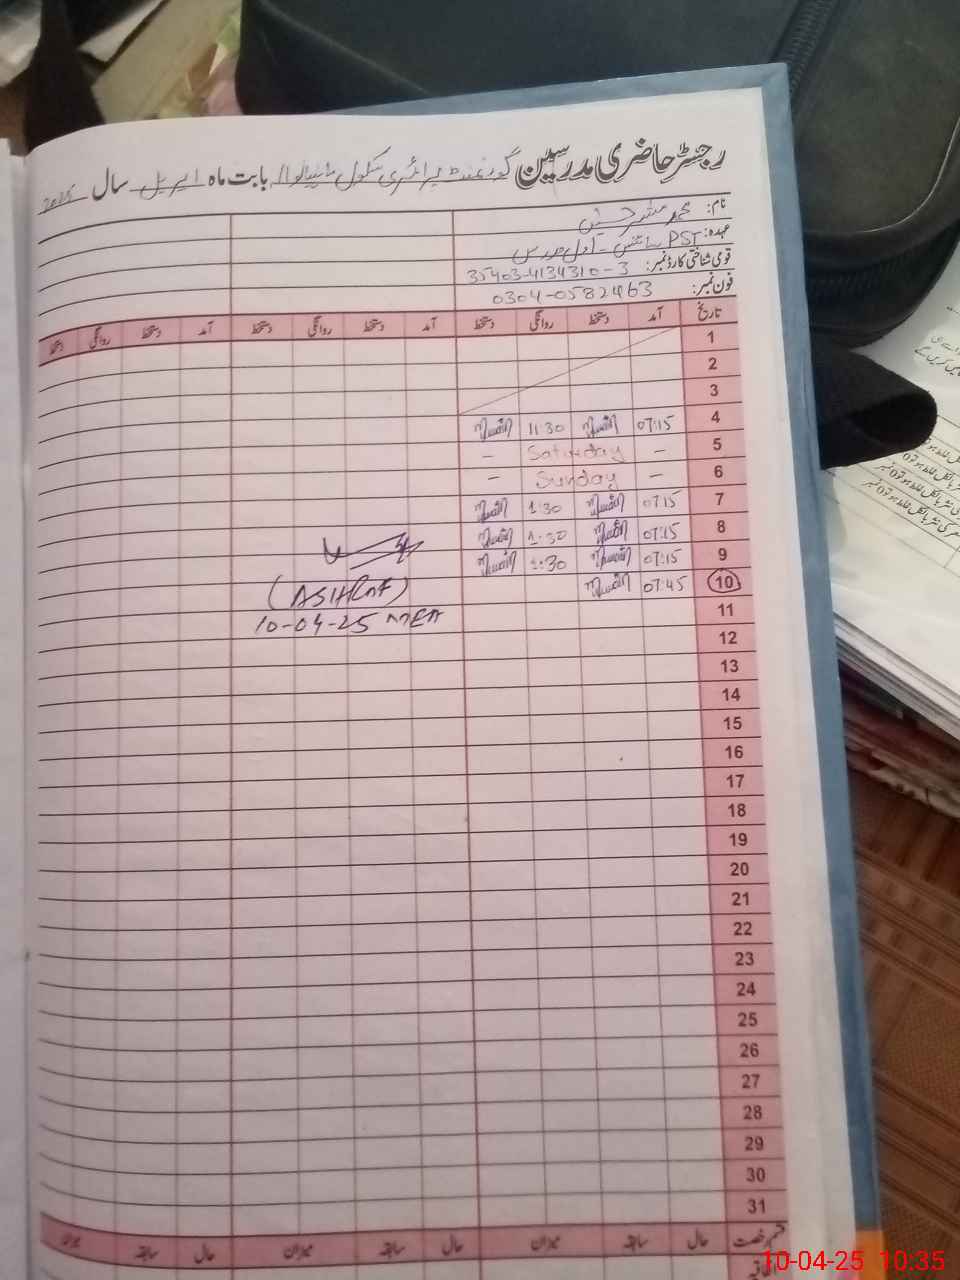 رجسٹر حاضری مدرسین گورنمنٹ پرائمری سکول بابت ماہ اپریل سال 2025
نام: محمد مبشر حسین
عہدہ: PST سائنس - اول مدرس
قومی شناختی کارڈ نمبر: 35403-4134310-3
فون نمبر: 0304-0582463
تاریخ آمد دستخط روانگی دستخط آمد دستخط روانگی دستخط آمد دستخط روانگی دستخط
1
2
3
4 07:15 11:30
5 - Saturday -
6 - Sunday -
7 07:15 1:30
8 07:15 1:30
9 07:15 1:30
10 07:45
(ASHRAF)
11
10-04-25 MEA
12
13
14
15
16
17
18
19
20
21
22
23
24
25
26
27
28
29
30
31
قسم رخصت حال سابقہ میزان حال سابقہ میزان حال سابقہ میزان
10-04-25 10:35